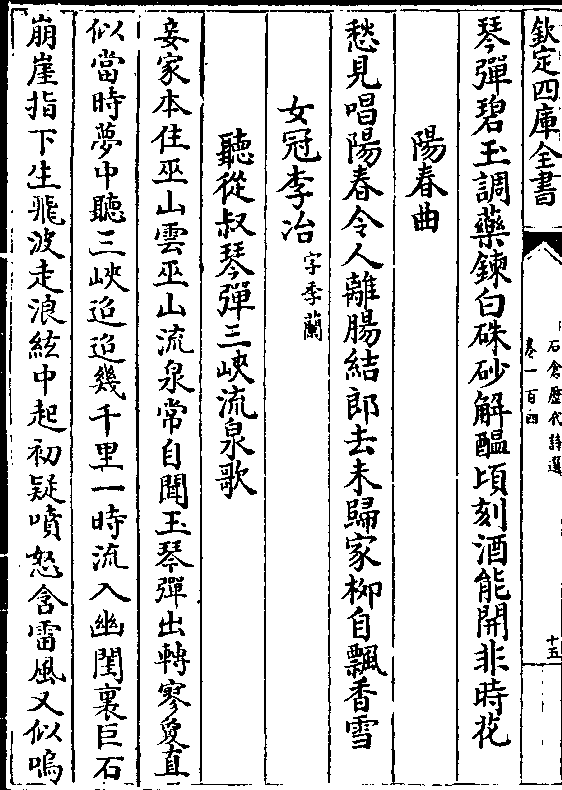 欽定四庫全書
石倉歷代詩選
卷一百四
十五
琴彈碧玉調藥鍊白硃砂解醞頃刻酒能開非時花
陽春曲
愁見唱陽春令人離腸結郎去未歸家柳自飄香雪
女冠李冶字季蘭
聽從叔琴彈三峽流泉歌
妾家本住巫山雲巫山流泉常自聞玉琴彈出轉寥夐直
似當時夢中聽三峽迢迢幾千里一時流入幽閨裏巨石
崩崖指下生飛波走浪絃中起初疑噴怒含雷風又似嗚